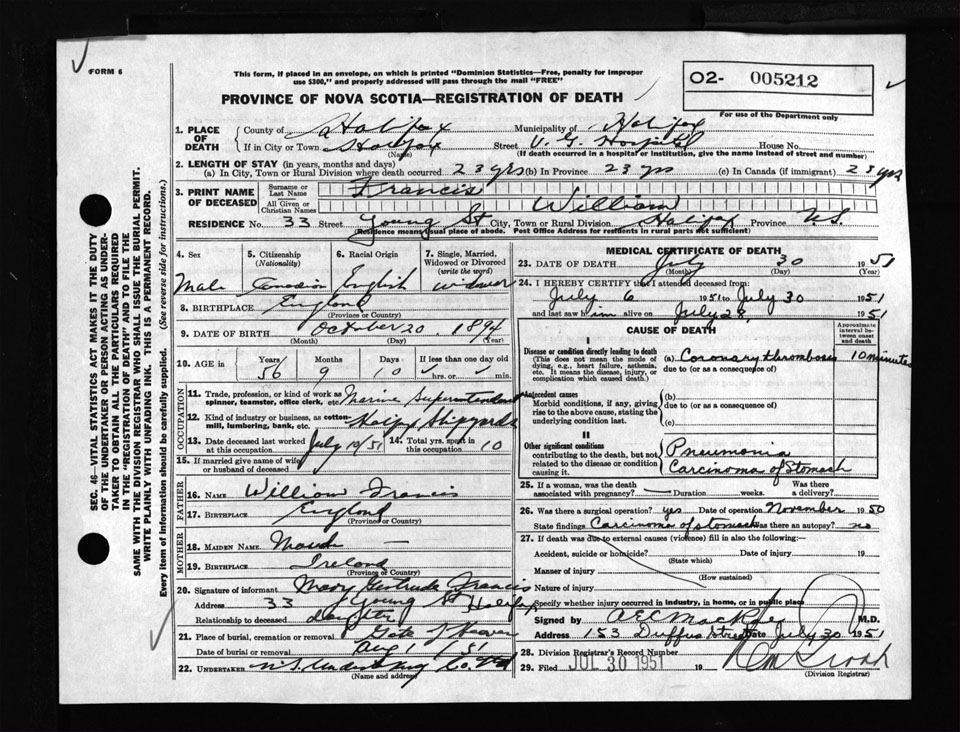 FORM 6
This form, if placed in an envelope, on which is printed "Dominion Statistics—Free, penalty for improper
use $300," and properly addressed will pass through the mail "FREE"
O2- 005212
For use of the Department only
PROVINCE OF NOVA SCOTIA—REGISTRATION OF DEATH
1. PLACE OF DEATH
County of Halifax Municipality of Halifax
If in City or Town Halifax Street V. G. Hospital House No.
(Name) (If death occurred in a hospital or institution, give the name instead of street and number)
2. LENGTH OF STAY (in years, months and days)
(a) In City, Town or Rural Division where death occurred 23 yrs (b) In Province 23 yrs (c) In Canada (if immigrant) 23 yrs
3. PRINT NAME OF DECEASED
Surname or Last Name Francis
All Given or Christian Names William
RESIDENCE No. 33 Street Young St City, Town or Rural Division Halifax Province N.S.
(Residence means usual place of abode. Post Office Address for residents in rural parts not sufficient)
4. Sex
Male
5. Citizenship
(Nationality)
Canadian
6. Racial Origin
English
7. Single, Married,
Widowed or Divorced
(write the word)
widower
8. BIRTHPLACE England
(Province or Country)
9. DATE OF BIRTH October 20, 1894
(Month) (Day) (Year)
10. AGE in Years Months Days If less than one day old
56 9 10 hrs. or min.
OCCUPATION
11. Trade, profession, or kind of work as
spinner, teamster, office clerk, etc. Marine Superintendent
12. Kind of industry or business, as cotton-
mill, lumbering, bank, etc. Halifx Shipyards
13. Date deceased last worked
at this occupation July 10/51
14. Total yrs. spent in
this occupation 10
15. If married give name of wife
or husband of deceased
FATHER
16. Name William Francis
17. Birthplace England
(Province or Country)
MOTHER
18. Maiden Name
19. Birthplace Ireland
(Province or Country)
20. Signature of informant Mary Gertrude Francis
Address 33 Young St Halifax
Relationship to deceased daughter
21. Place of burial, cremation or removal Gate of Heaven
Date of burial or removal Aug 1 / 51
22. Undertaker N.S. Undertaking Co. Ltd
(Name and address)
MEDICAL CERTIFICATE OF DEATH
23. DATE OF DEATH July 30 1951
(Month) (Day) (Year)
24. I HEREBY CERTIFY that I attended deceased from
July 6 1951 to July 30 1951
and last saw him alive on July 28, 1951
CAUSE OF DEATH
Approximate
interval be-
tween onset
and death
I
Disease or condition directly leading to death
(This does not mean the mode of
dying, e.g., heart failure, asthenia,
etc. It means the disease, injury, or
complication which caused death.)
(a) Coronary thrombosis 10 minutes
due to (or as a consequence of)
Antecedent causes
Morbid conditions, if any, giving
rise to the above cause, stating the
underlying condition last.
(b)
due to (or as a consequence of)
(c)
II
Other significant conditions
contributing to the death, but not
related to the disease or condition
causing it.
Pneumonia
Carcinoma of Stomach
25. If a woman, was the death
associated with pregnancy? Duration weeks. Was there
a delivery?
26. Was there a surgical operation? yes Date of operation November 1950
State findings Carcinoma of stomach Was there an autopsy? no
27. If death was due to external causes (violence) fill in also the following:—
Accident, suicide or homicide? Date of injury 19
(State which)
Manner of injury
(How sustained)
Nature of injury
Specify whether injury occurred in industry, in home, or in public place
Signed by M.D.
Address 153 Duffus Street Date July 30 1951
28. Division Registrar's Record Number
29. Filed JUL 30 1951 19
(Division Registrar)
SEC. 46—VITAL STATISTICS ACT MAKES IT THE DUTY
OF THE UNDERTAKER OR PERSON ACTING AS UNDER-
TAKER TO OBTAIN ALL THE PARTICULARS REQUIRED
IN THE "REGISTRATION OF DEATH" AND TO FILE THE
SAME WITH THE DIVISION REGISTRAR WHO SHALL ISSUE THE BURIAL PERMIT.
WRITE PLAINLY WITH UNFADING INK. THIS IS A PERMANENT RECORD.
Every item of Information should be carefully supplied. (See reverse side for instructions.)